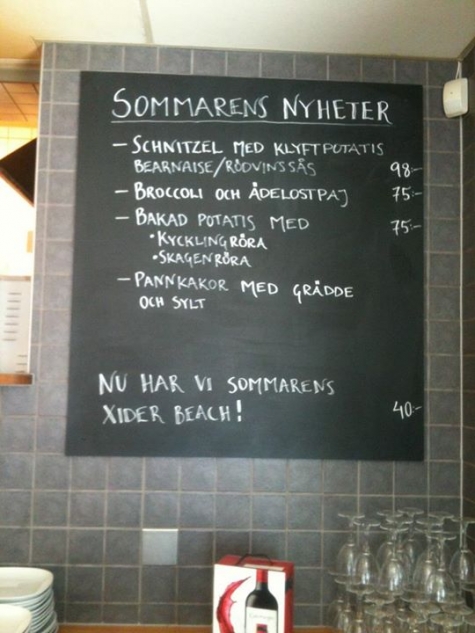 SOMMARENS NYHETER
- SCHNITZEL MED KLYFTPOTATIS
BEARNAISE/RÖDVINSSÅS 98:-
- BROCCOLI OCH ÅDELOSTPAJ 75:-
- BAKAD POTATIS MED 75:-
• KYCKLINGRÖRA
• SKAGENRÖRA
- PANNKAKOR MED GRÄDDE
OCH SYLT
NU HAR VI SOMMARENS
XIDER BEACH! 40:-